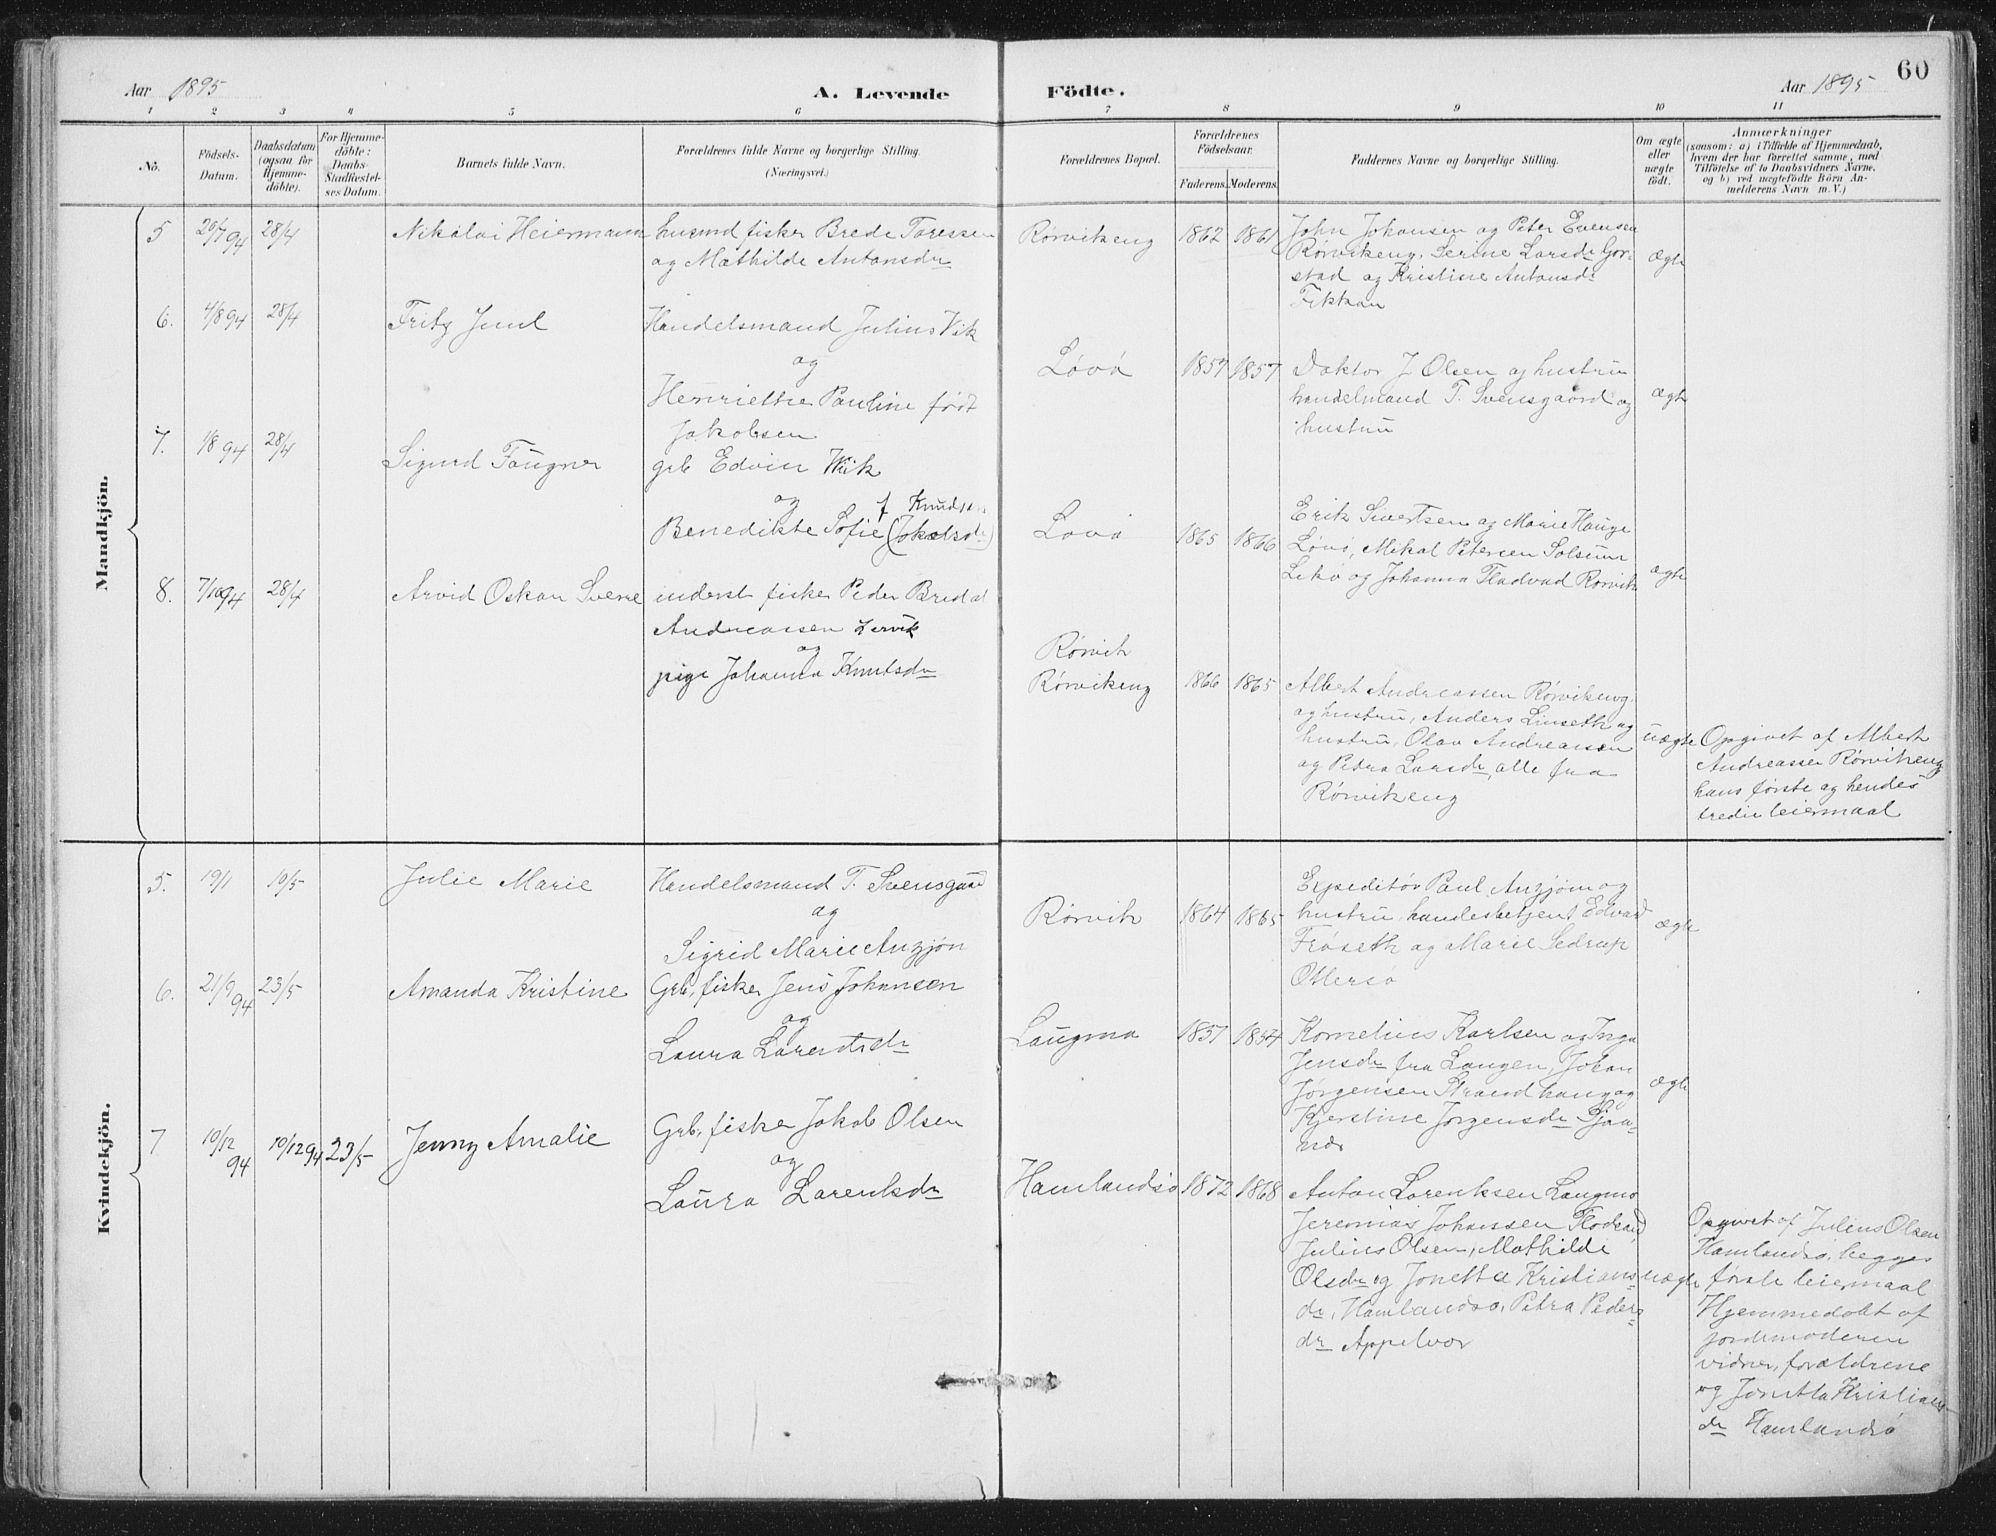 60
Aar 1895
A. Levende
Födte.
Aar 1895
1 2 3 4 5 6 7 8 9 10 11
No.
Födsels-
Datum.
Daabsdatum
(ogsaa for
Hjemme-
döbte).
For Hjemme-
döbte:
Daabs-
Stadfæstel-
ses Datum.
Barnets fulde Navn.
Forældrenes fulde Navne og borgerlige Stilling.
(Næringsvei.)
Forældrenes Bopæl.
Forældrenes
Födselsaar.
Faderens. Moderens.
Faddernes Navne og borgerlige Stilling.
Om ægte
eller
uægte
födt.
Anmærkninger
(saasom: a) i Tilfælde af Hjemmedaab,
hvem der har forrettet samme, med
Tilföielse af to Daabsvidners Navne,
og b) ved uægtefödte Börn An-
melderens Navn m. V.)
Mandkjön.
5 26/7 94 28/4 Nikolai Heiermann
husmd fisker Brede Taressen
og Mathilde Antonsdr
Rørvikeng 1862 1861
John Johansen og Peter Evensen
Rørvikeng, Serine Larsdr Gor-
stad og Kristine Antonsdr
ægte
6. 4/8 94 28/4 Fritz Juul
Handelsmand Julius Vik
og
Henriette Pauline født
Jakobsen
Løvø 1857 1857
Doktor J Olsen og hustru
handelmand T. Svensgaard og
hustru
ægte
7. 1/8 94 28/4 Sigurd Faugner
grb Edvin Wiik
og
f Knudsen
Benedikte Sofie (Jokelsdr)
Løvø 1865 1866
Erik Sivertsen og Marie Hauge
Løvø, Mikal Petersen Solsum
Lekø og Johanna Fladvad Rørvik
ægte
8. 7/10 94 28/4 Arvid Oskar Sverre
inderst fisker Peder Bredal
Andreassen Lervik
og
pige Johanna Knutsdr
Rørvik
Rørvikeng 1866 1865
Albert Andreassen Rørvikeng
og hustru, Anders Linseth og
hustru, Olav Andreassen
og Petra Larsdr, alle fra
Rørvikeng
uægte
Opgivet af Albert
Andreassen Rørvikeng
hans første og hendes
tredie leiermaal
Kvindekjön.
5. 19/1 10/5 Julie Marie
Handelsmand T. Svensgaard
og
Sigrid Marie Anzjøn
Rørvik 1864 1865
Expeditør Paul Anzjøn og
hustru, handelsbetjent Edvard
Frøseth og Marie Sedrup
Ottersø
ægte
6. 21/9 94 23/5 Amanda Kristine
Grb, fisker Jens Johansen
og
Laura Larentsdr
Laugma 1857 1854
Kornelius Karlsen og Inga
Jensdr fra Langen, Johan
Jørgensen Strandhaug og
Kjerstine Jørgensdr
ægte
7 10/12 94 10/12 94 23/5 Jenny Amalie
Grb, fisker Jakob Olsen
og
Laura Larentsdr
Hamlandsø 1872 1868
Anton Lorentsen Laugmo
Jeremias Johansen Flosand
Julius Olsen, Mathilde
Olsdr og Jonetta Kristians-
dr, Hamlandsø, Petra Peders-
dr Appelvær
uægte
Opgivet af Julius Olsen
Hamlandsø, begges
første leiermaal
Hjemmedøbt af
jordemoderen
vidner, forældrene
og Jonetta Kristians-
dr Hamlandsø